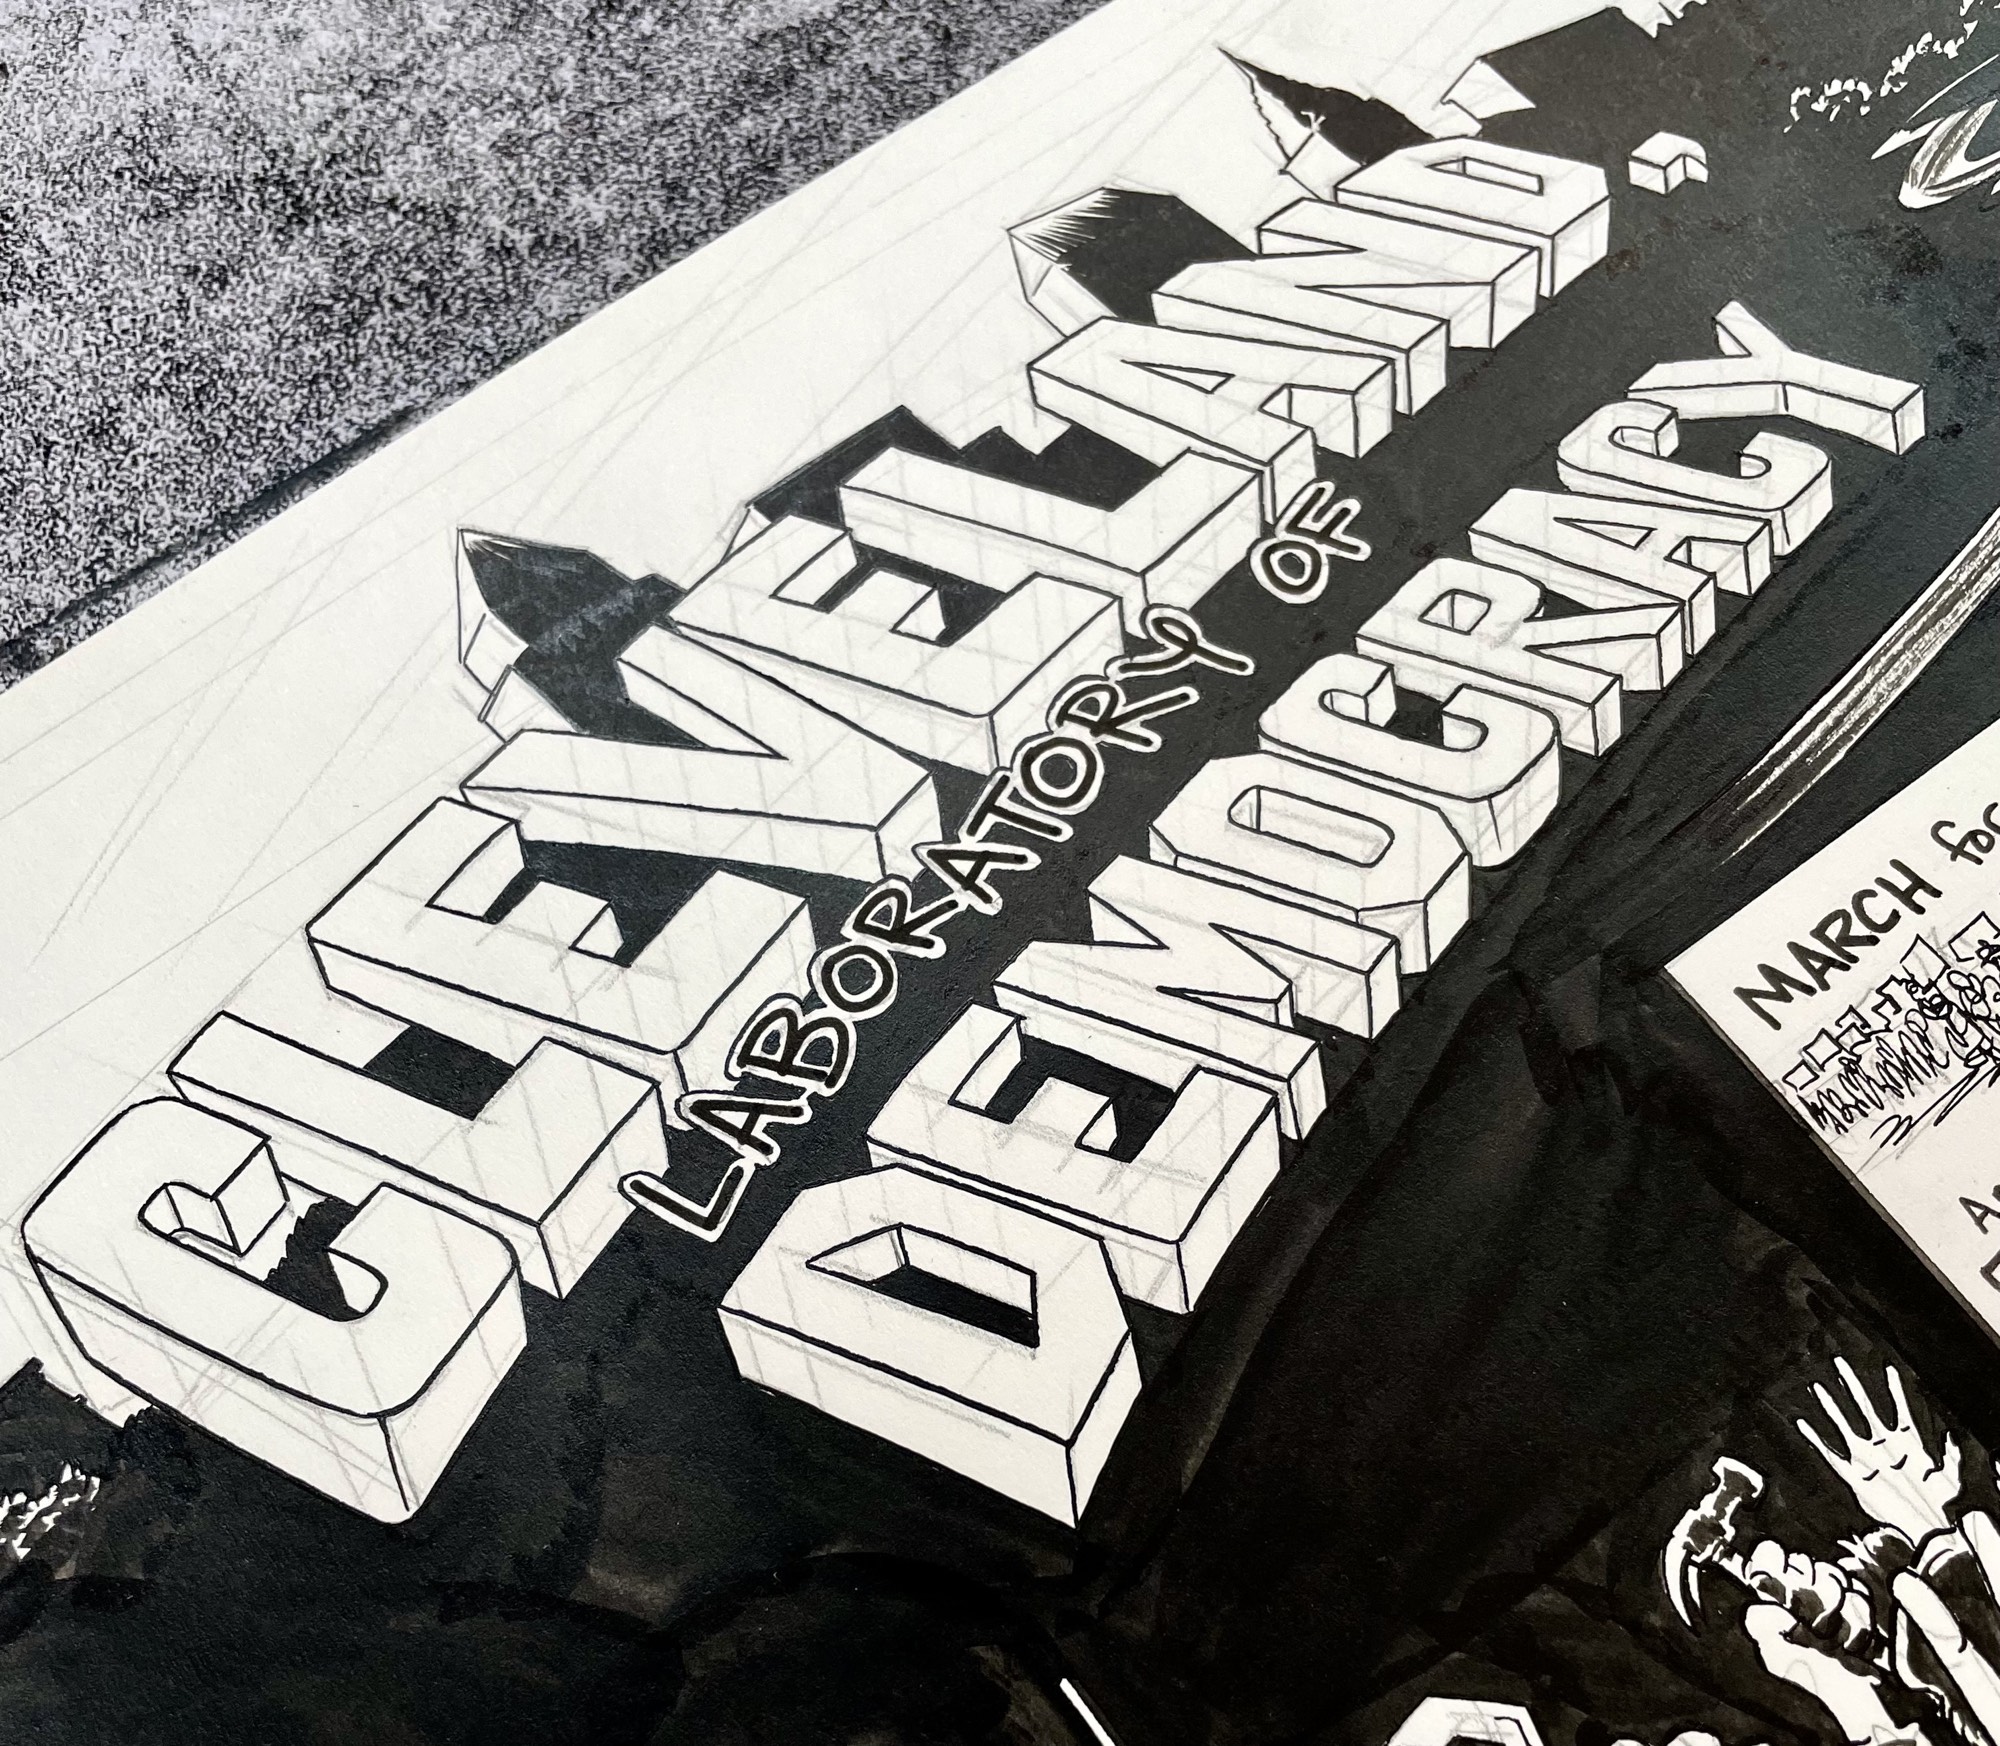 CLEVELAND,
LABORATORY OF
DEMOCRACY
MARCH for